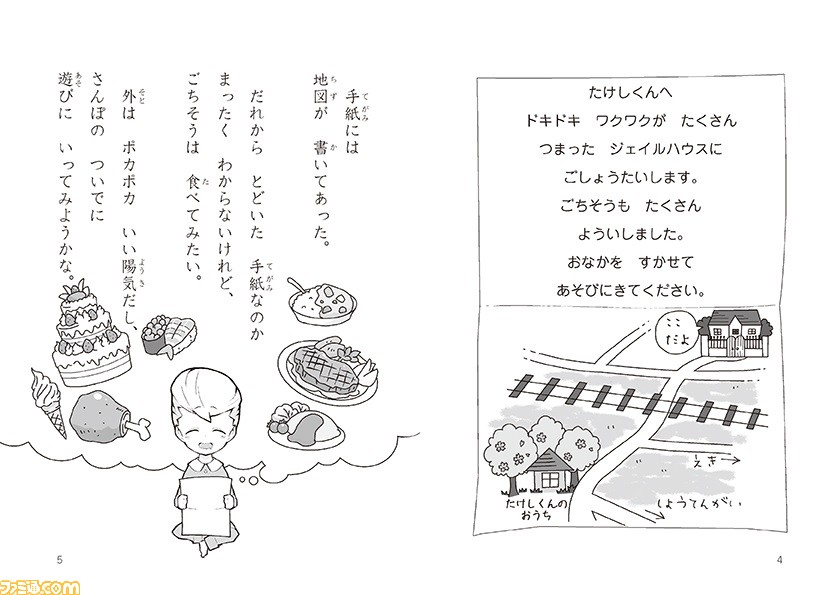 たけしくんへ
ドキドキ　ワクワクが　たくさん
つまった　ジェイルハウスに
ごしょうたいします。
ごちそうも　たくさん
よういしました。
おなかを　すかせて
あそびにきてください。
ここ
だよ
えき
しょうてんがい
たけしくんの
おうち
4
手紙には
地図が　書いてあった。
だれから　とどいた　手紙なのか
まったく　わからないけれど、
ごちそうは　食べてみたい。
外は　ポカポカ　いい陽気だし、
さんぽの　ついでに
遊びに　いってみようかな。
5
ファミ通.com